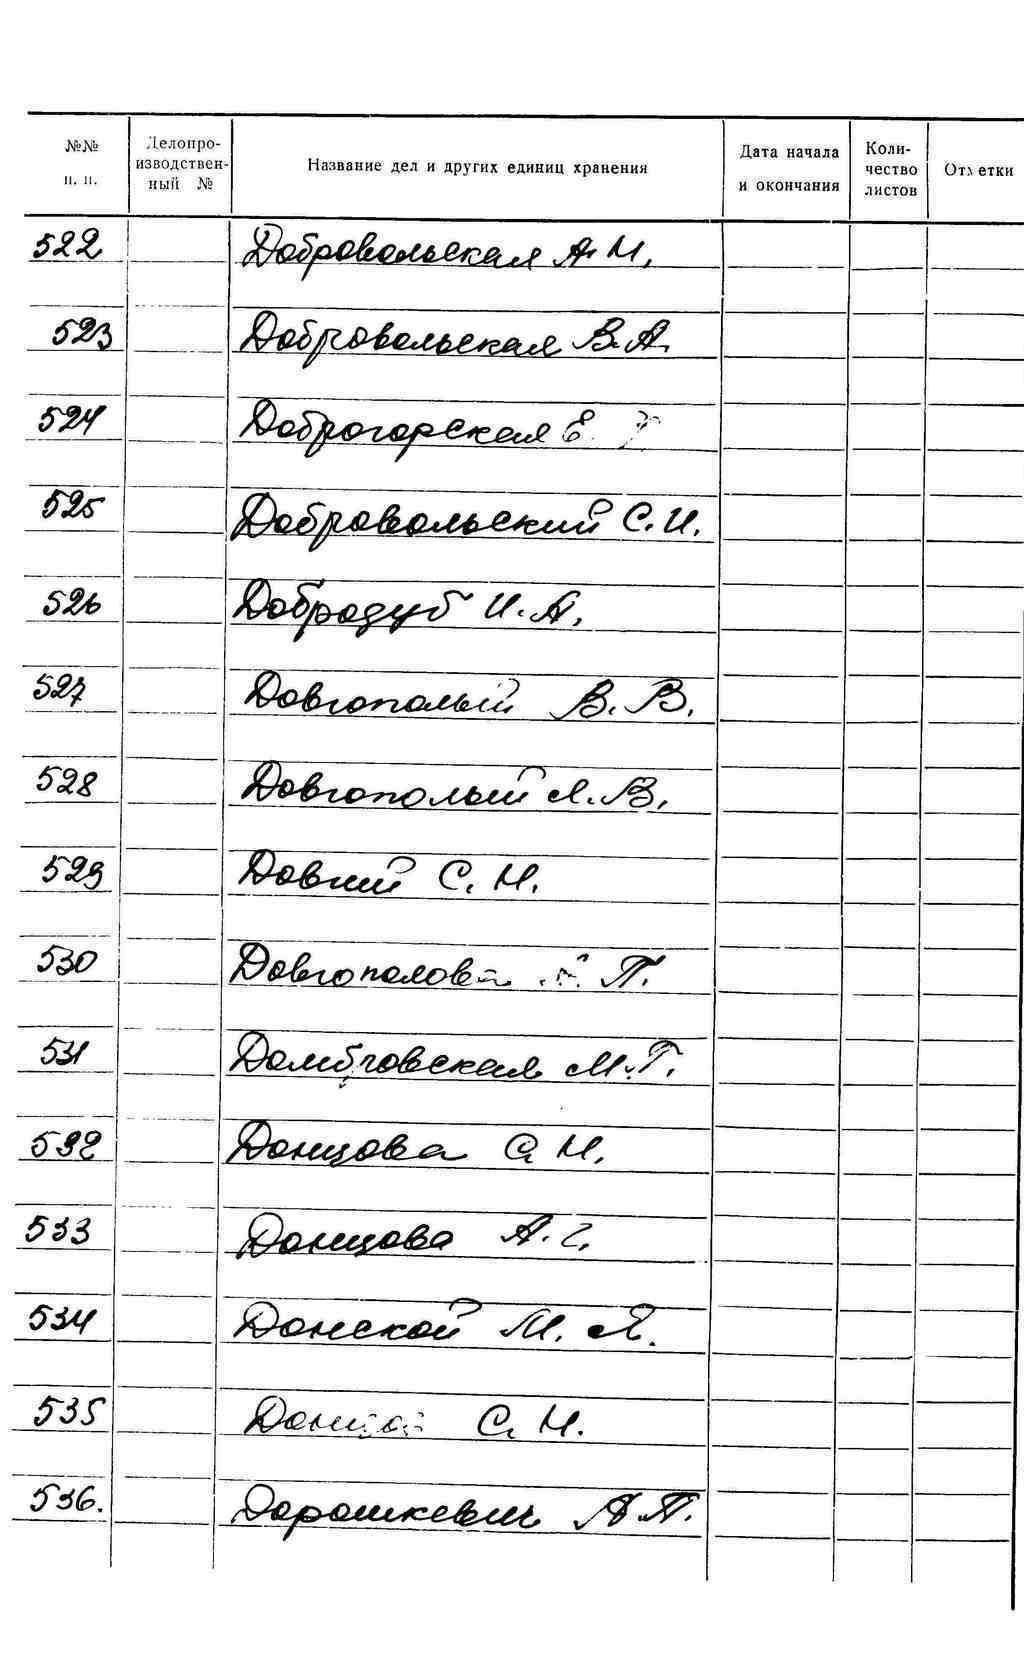 №№ п. п. Делопроизводственный № Название дел и других единиц хранения Дата начала и окончания Количество листов Отметки
522 Добровольская А. М.
523 Добровольская В. А.
524 Доброгорская Е.
525 Добровольский С. И.
526 Добродуб И. А.
527 Довгополый В. В.
528 Довгополый Л. В.
529 Довгий С. Н.
530 Довгополова П.
531 Домбровская М. Г.
532 Донцова С. Н.
533 Донцова А. Г.
534 Донской М. Я.
535 С. Н.
536. Дорошкевич А. П.